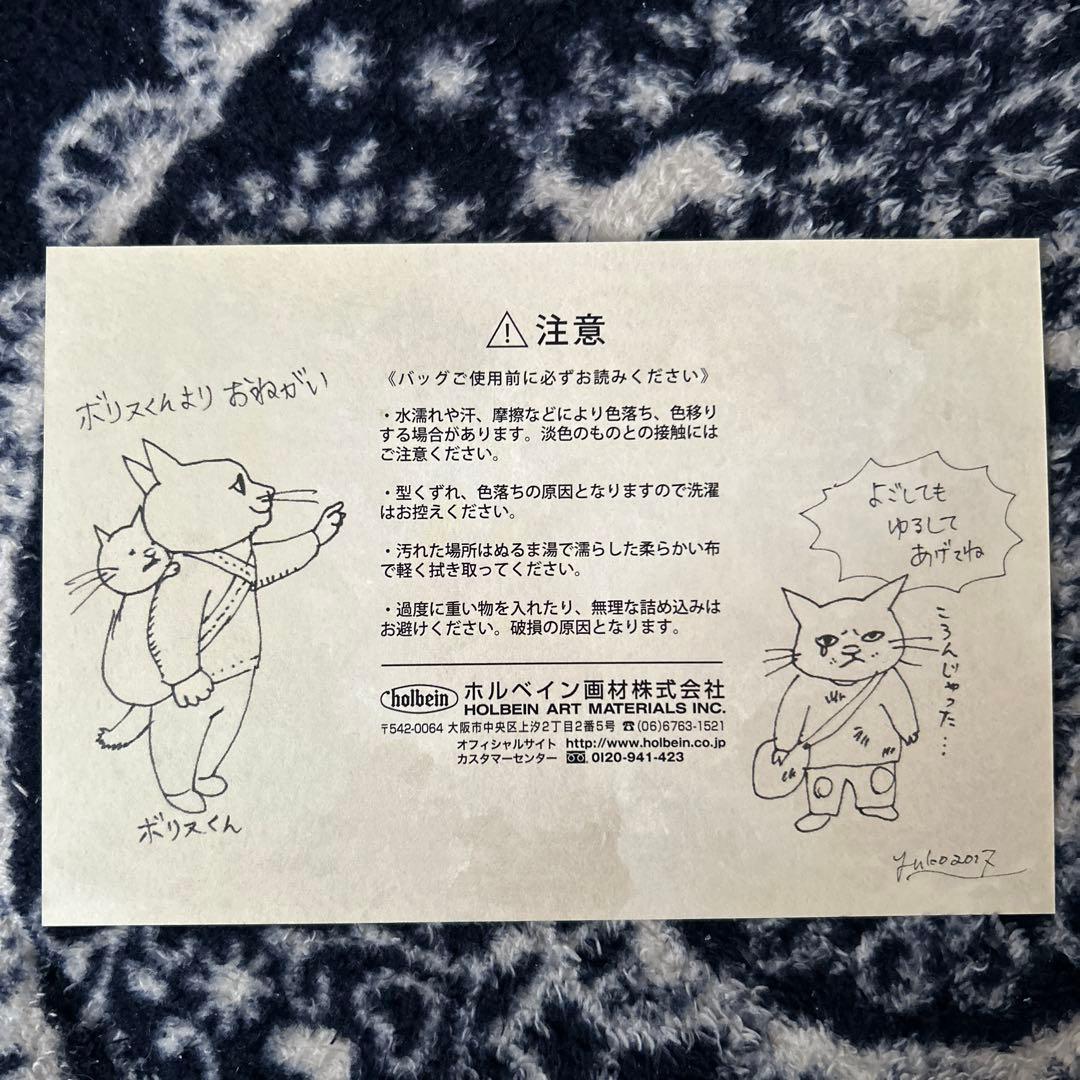 注意
《バッグご使用前に必ずお読みください》
・水濡れや汗、摩擦などにより色落ち、色移り
する場合があります。淡色のものとの接触には
ご注意ください。
・型くずれ、色落ちの原因となりますので洗濯
はお控えください。
・汚れた場所はぬるま湯で濡らした柔らかい布
で軽く拭き取ってください。
・過度に重い物を入れたり、無理な詰め込みは
お避けください。破損の原因となります。
holbein ホルベイン画材株式会社
HOLBEIN ART MATERIALS INC.
〒542-0064 大阪市中央区上汐2丁目2番5号 ☎(06)6763-1521
オフィシャルサイト http://www.holbein.co.jp
カスタマーセンター 0120-941-423
ボリスくんより おねがい
ボリスくん
よごしても
ゆるして
あげてね
ころんじゃった…
Yuko 2017